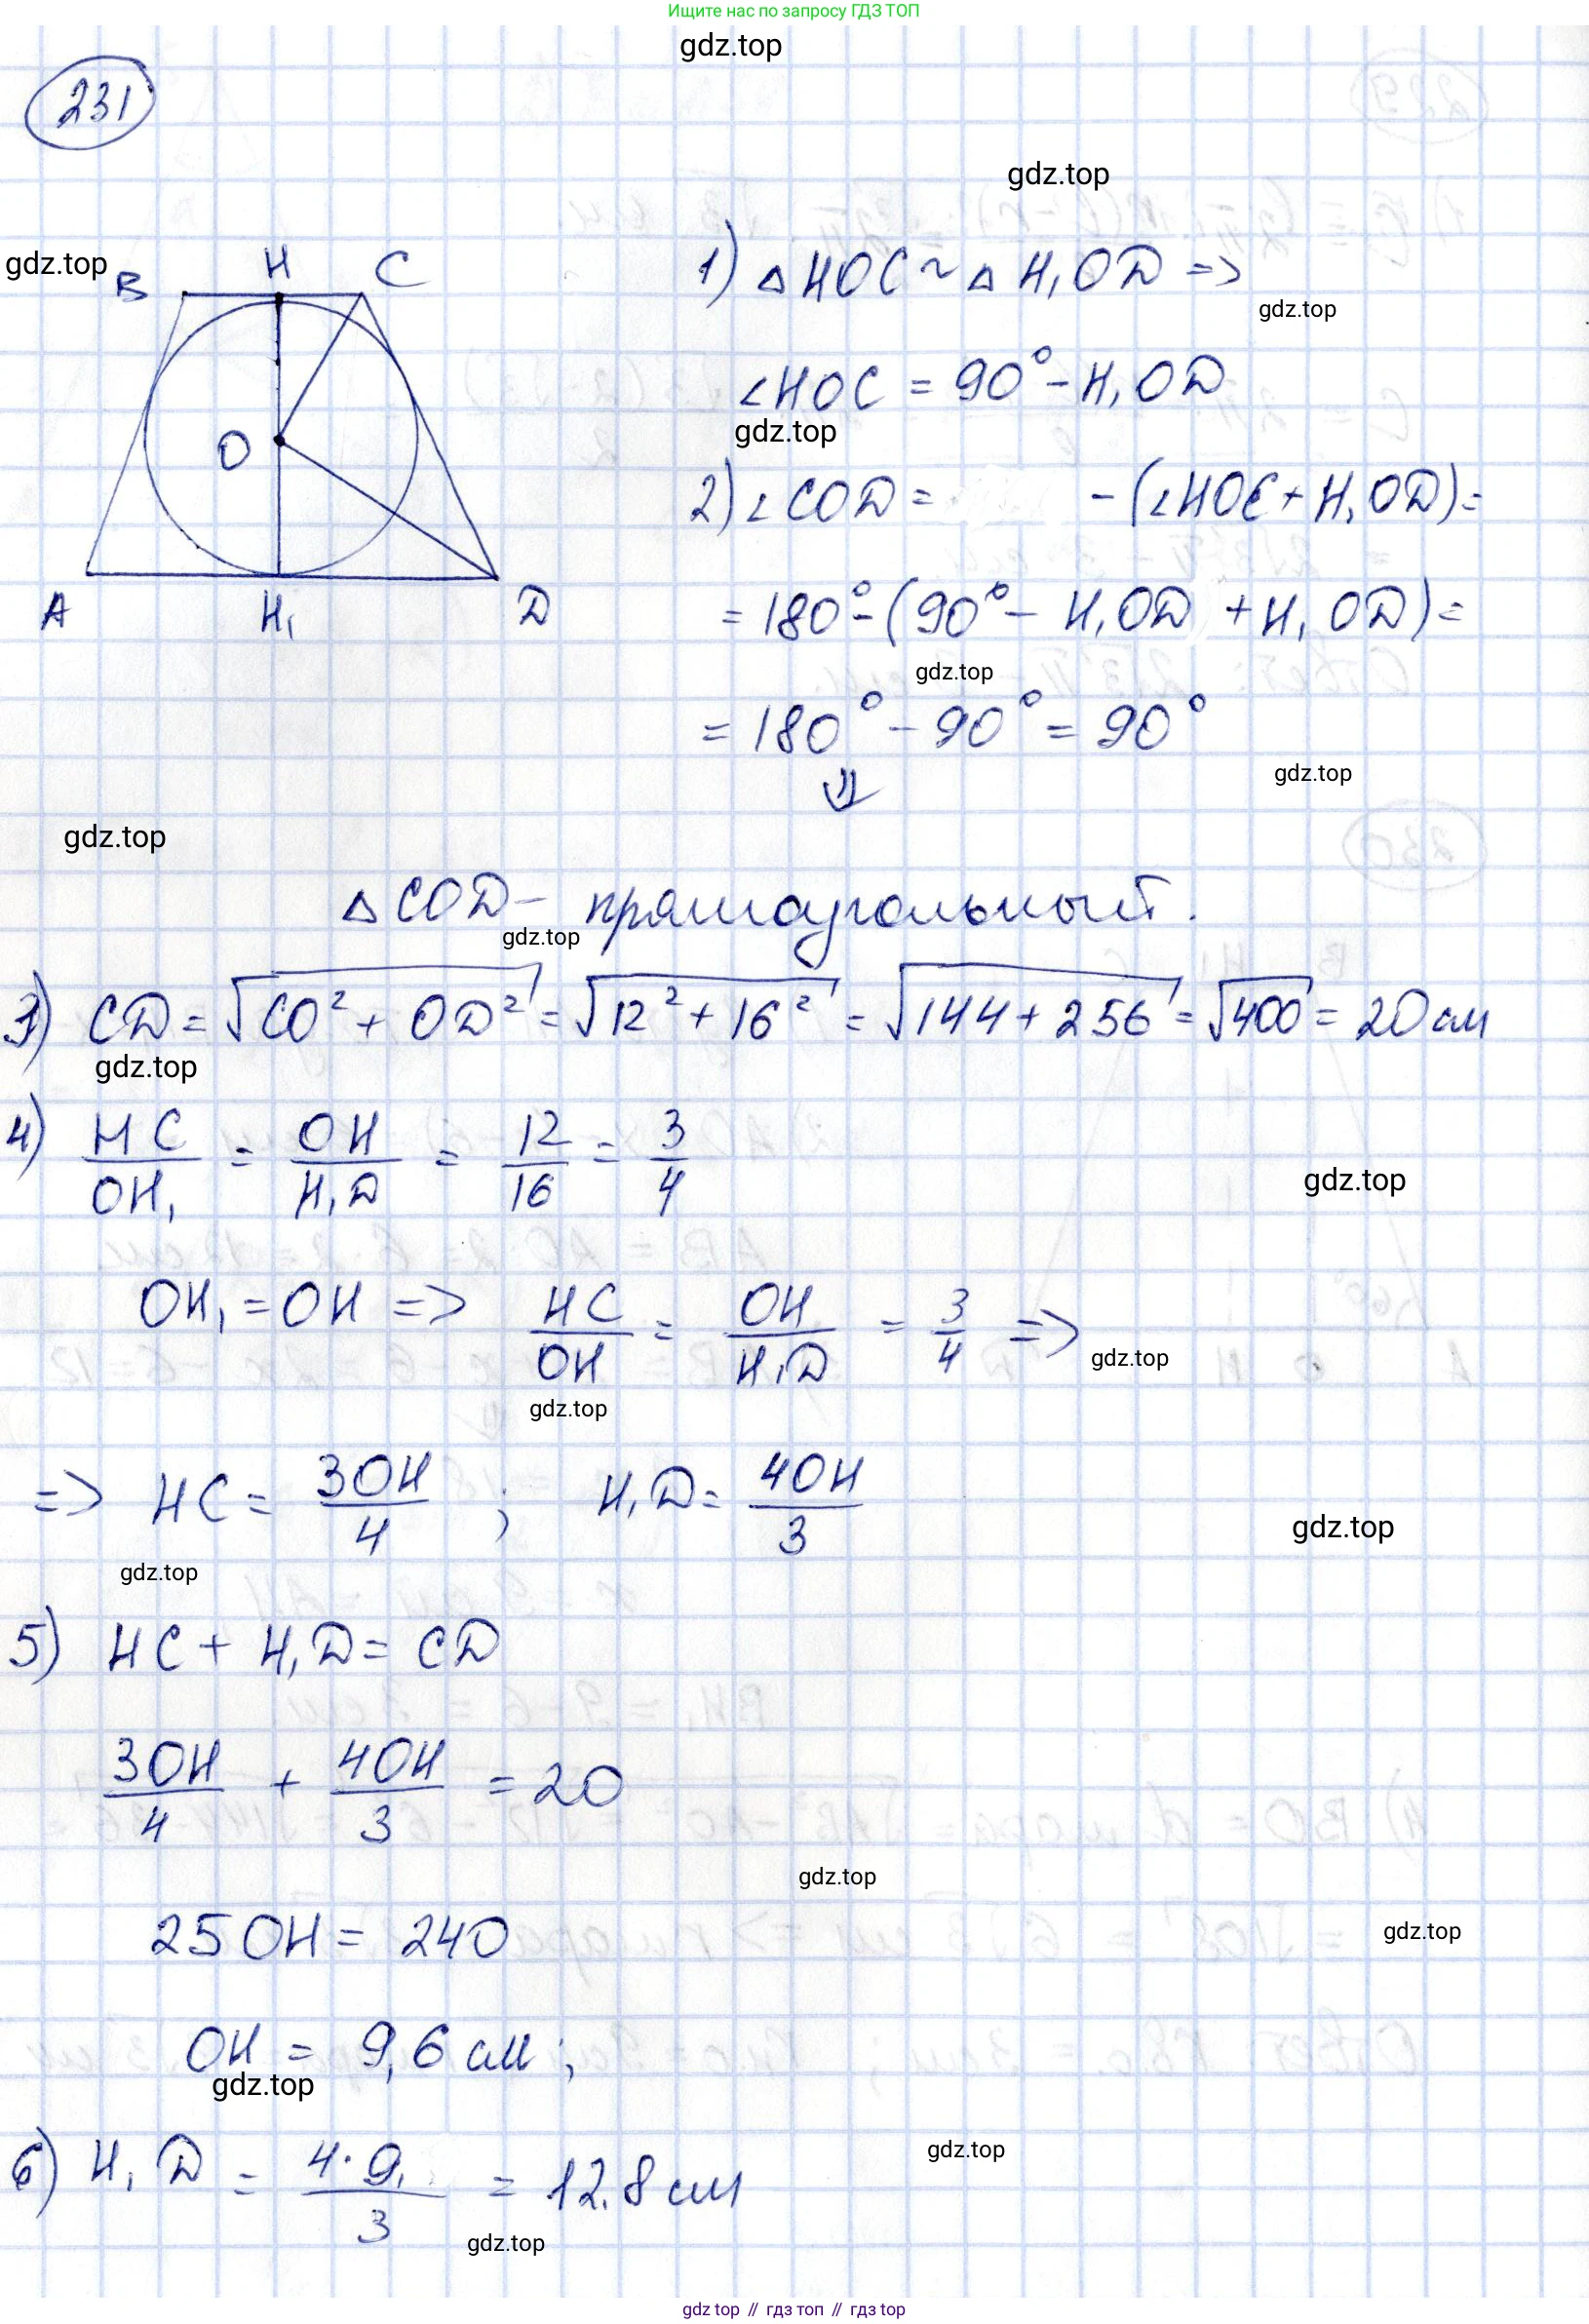 Ищите нас по запросу ГДЗ ТОП
gdz.top
231
gdz.top
gdz.top
B H C
O
A H₁ D
1) △HOC ~ △H₁OD =>
gdz.top
∠HOC = 90° - H₁OD
gdz.top
2) ∠COD = - (∠HOC + H₁OD) =
= 180° - (90° - H₁OD + H₁OD) =
gdz.top
= 180° - 90° = 90°
⇓
gdz.top
gdz.top
△COD - прямоугольный.
gdz.top
3) CD = √(CO² + OD²) = √(12² + 16²) = √(144 + 256) = √400 = 20 см
gdz.top
4) HC/OH₁ = OH/H₁D = 12/16 = 3/4
gdz.top
OH₁ = OH => HC/OH = OH/H₁D = 3/4 =>
gdz.top
gdz.top
=> HC = 3OH/4 ; H₁D = 4OH/3
gdz.top
gdz.top
5) HC + H₁D = CD
3OH/4 + 4OH/3 = 20
gdz.top
25OH = 240
gdz.top
OH = 9,6 см;
gdz.top
6) H₁D = 4·9,/3 = 12.8 см
gdz.top
gdz.top
gdz top // гдз топ // gdz top